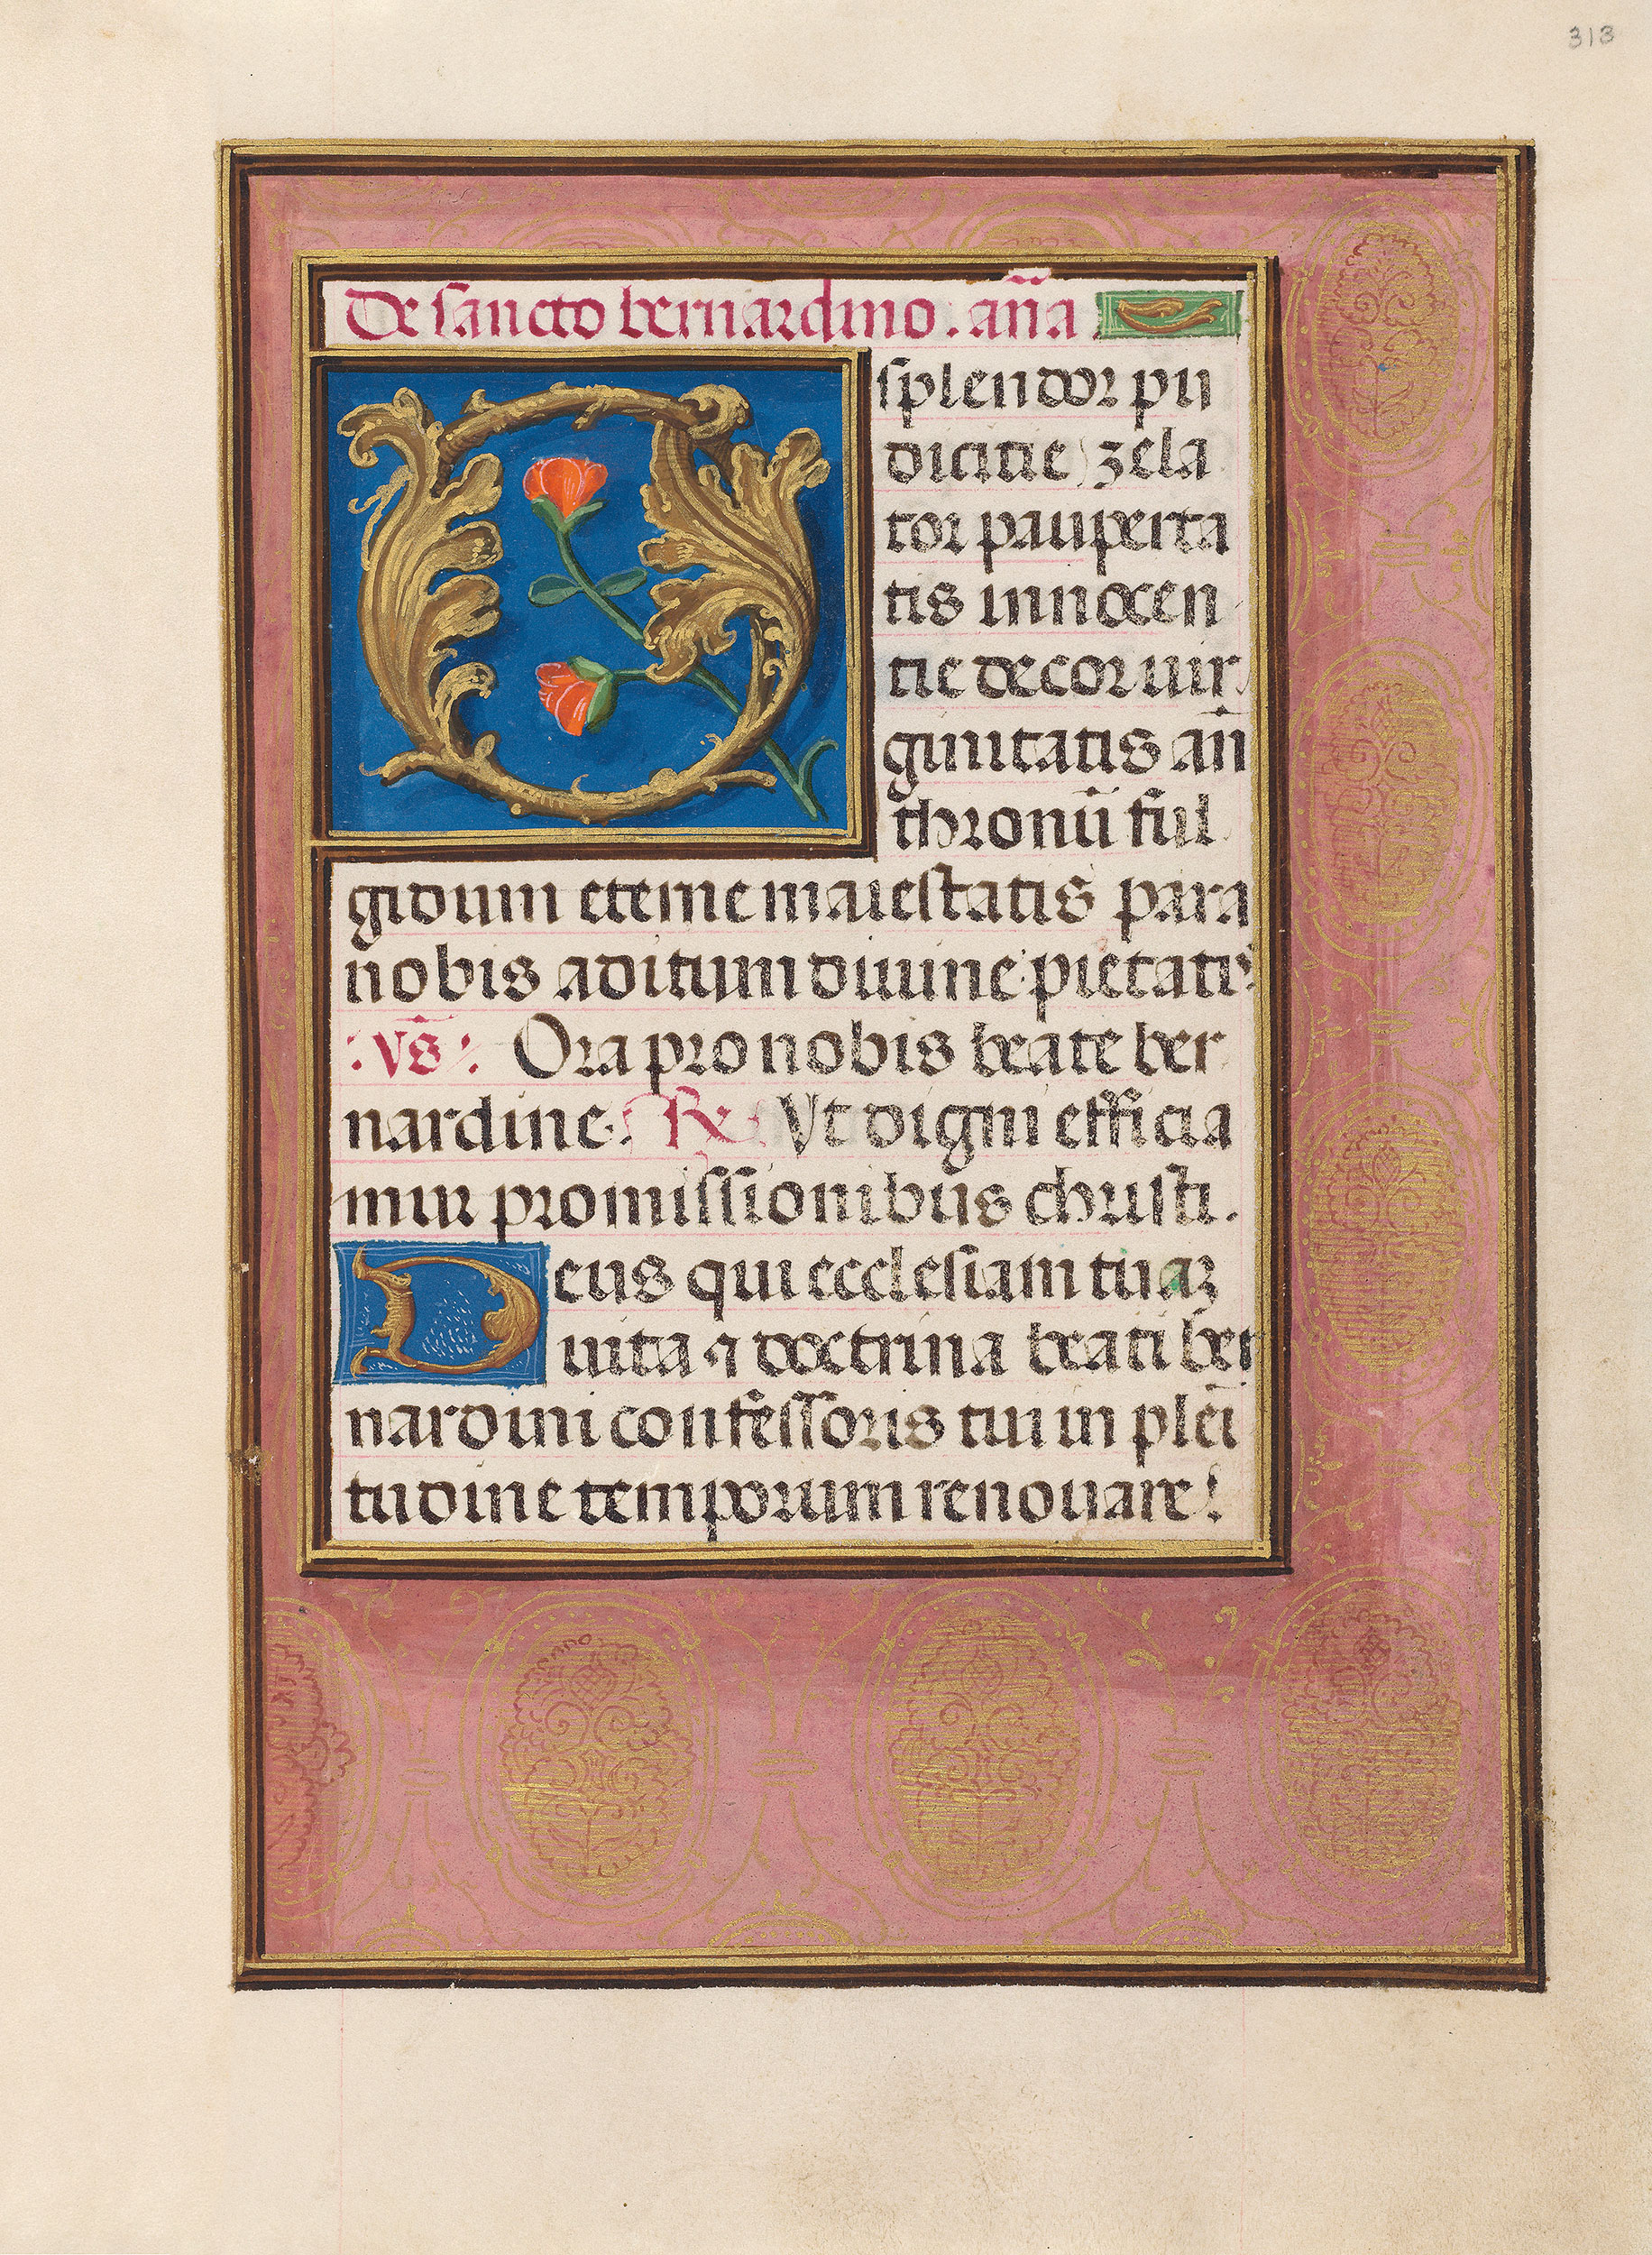 313
De sancto bernardino. an̄a
O splendor pu
dicitie zela
tor pauperta
tis innocen
tie decor uir
ginitatis an̄
thronū ful
gidum eterne maiestatis para
nobis aditum diuine pietatis
vs̄ Ora pro nobis beate ber
nardine. R Vt digni efficia
mur promissionibus christi.
Deus qui ecclesiam tuaz
uita ⁊ doctrina beati ber
nardini confessoris tui in pleī
tudine temporum renouare